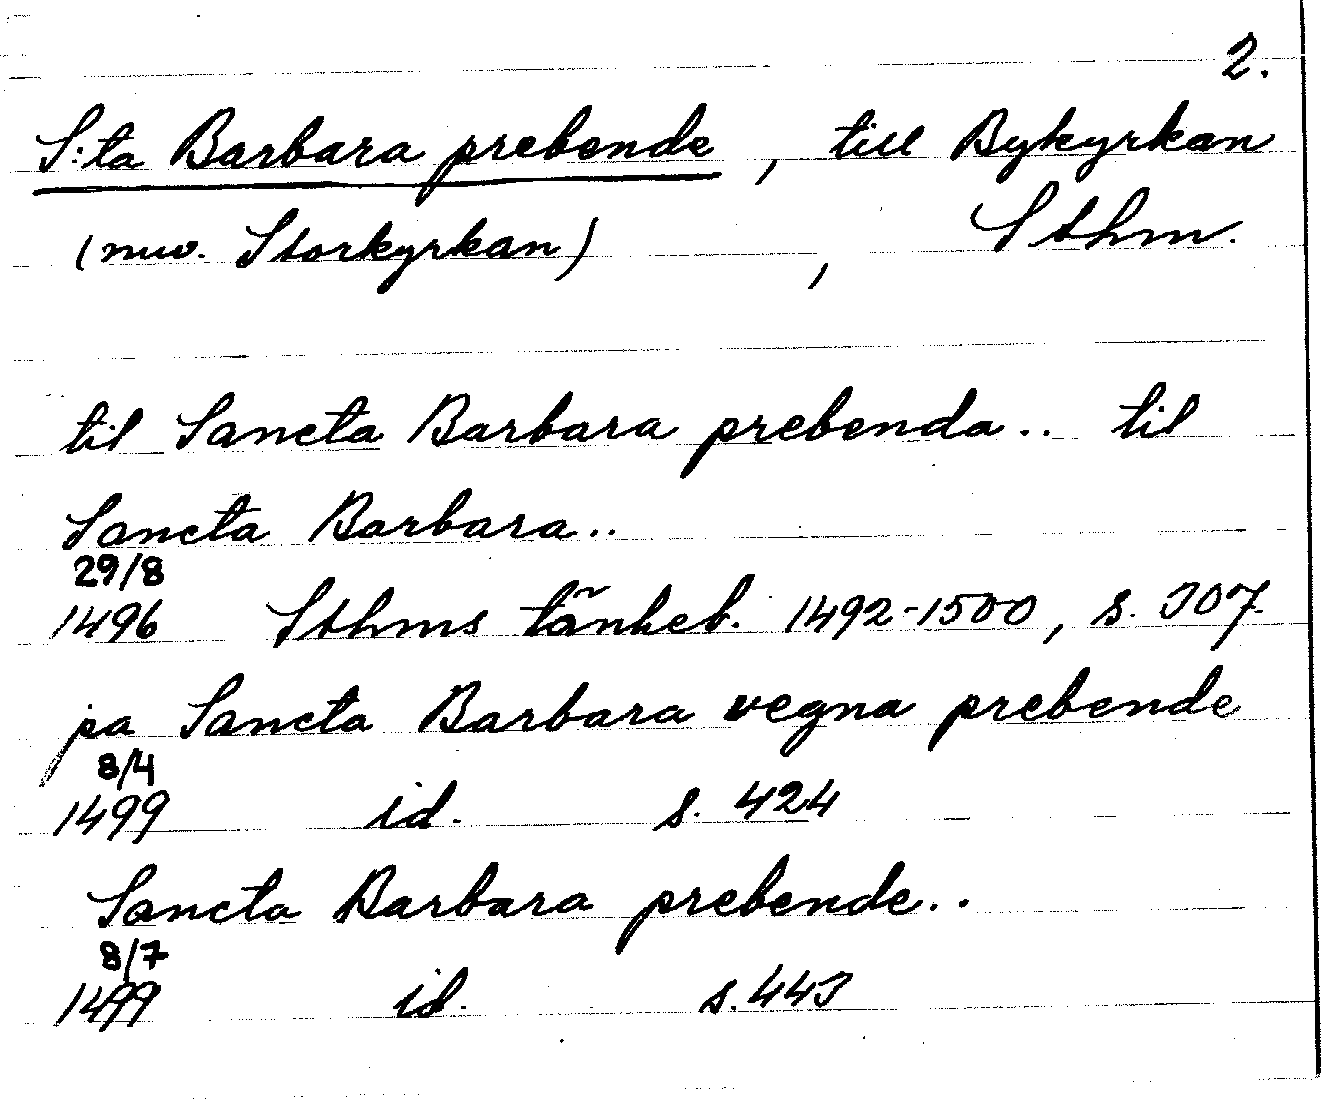 2.
S:ta Barbara prebende, till Bykyrkan
(nuv. Storkyrkan), Sthm.
til Sancta Barbara prebenda.. til
Sancta Barbara..
29/8
1496 Sthms tänkeb. 1492-1500, s. 307
pa Sancta Barbara vegna prebende
8/4
1499 id. s. 424
Sancta Barbara prebende..
8/7
1499 id. s. 443